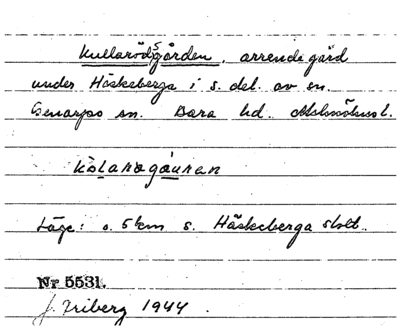 Kullarödsgården, arrendegård
under Häckeberga i s. del. av sn.
Genarps sn. Bara hd. Malmöhus l.
Läge: o. 5 km s. Häckeberga slott.
Nr 5531.
J. Friberg 1944.